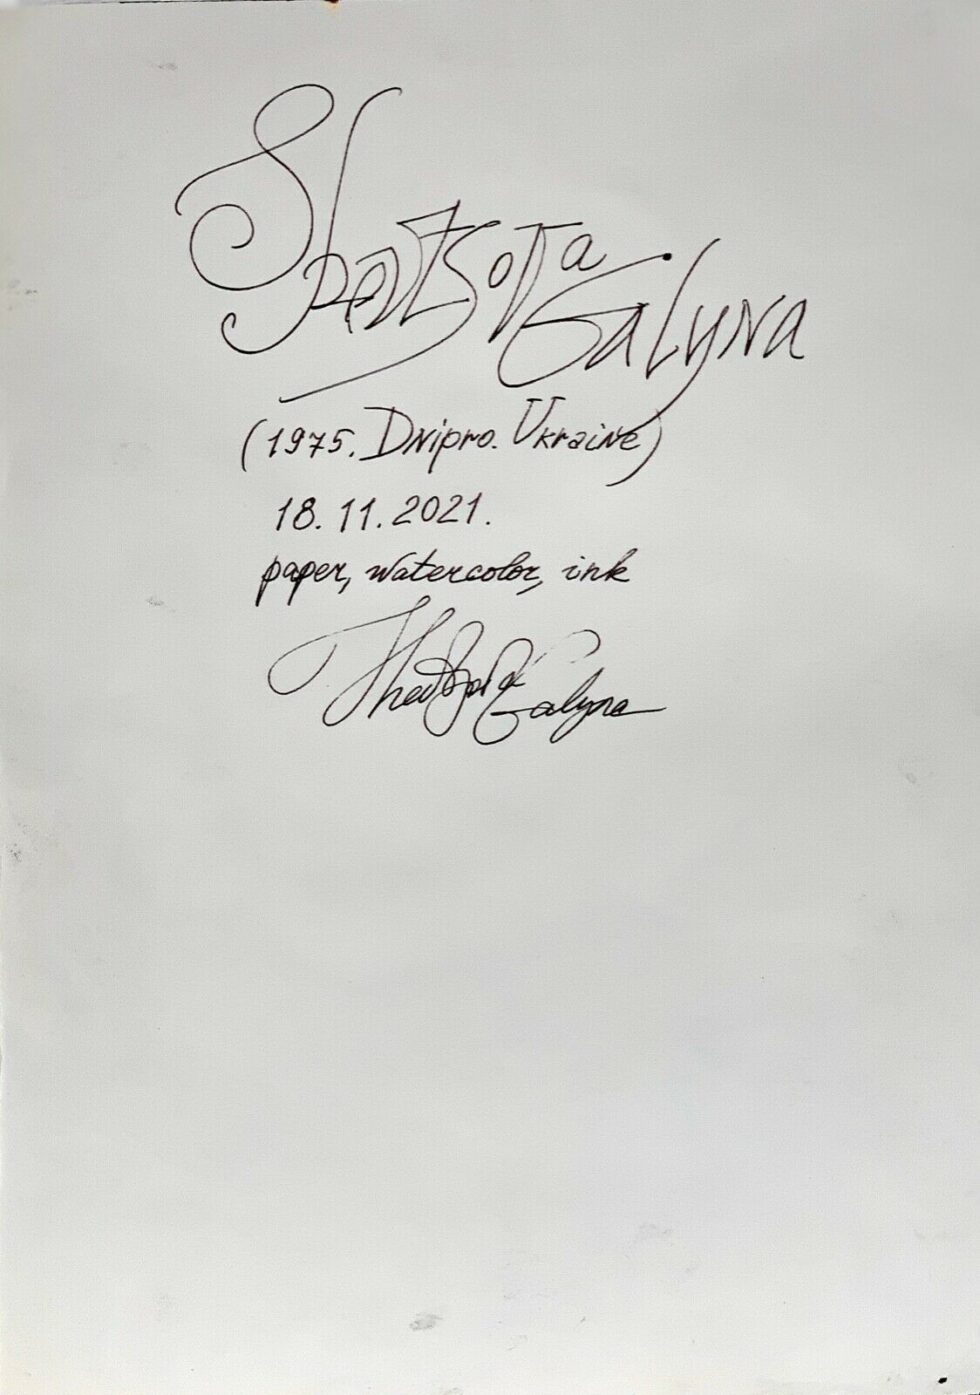 Shevtsova
Galyna
(1975. Dnipro. Ukraine)
18.11.2021.
paper, watercolor, ink
Galyna